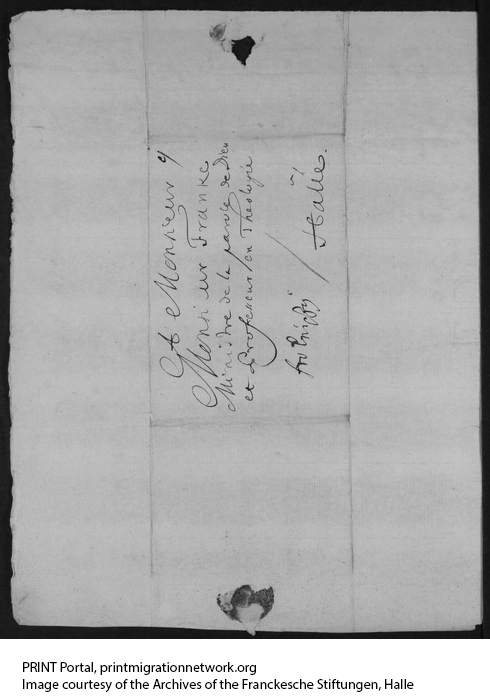 A Monsieur
Monsieur Franke
Ministre de la parole de Dieu
et Professeur en Theologie
à Halle.
PRINT Portal, printmigrationnetwork.org
Image courtesy of the Archives of the Franckesche Stiftungen, Halle